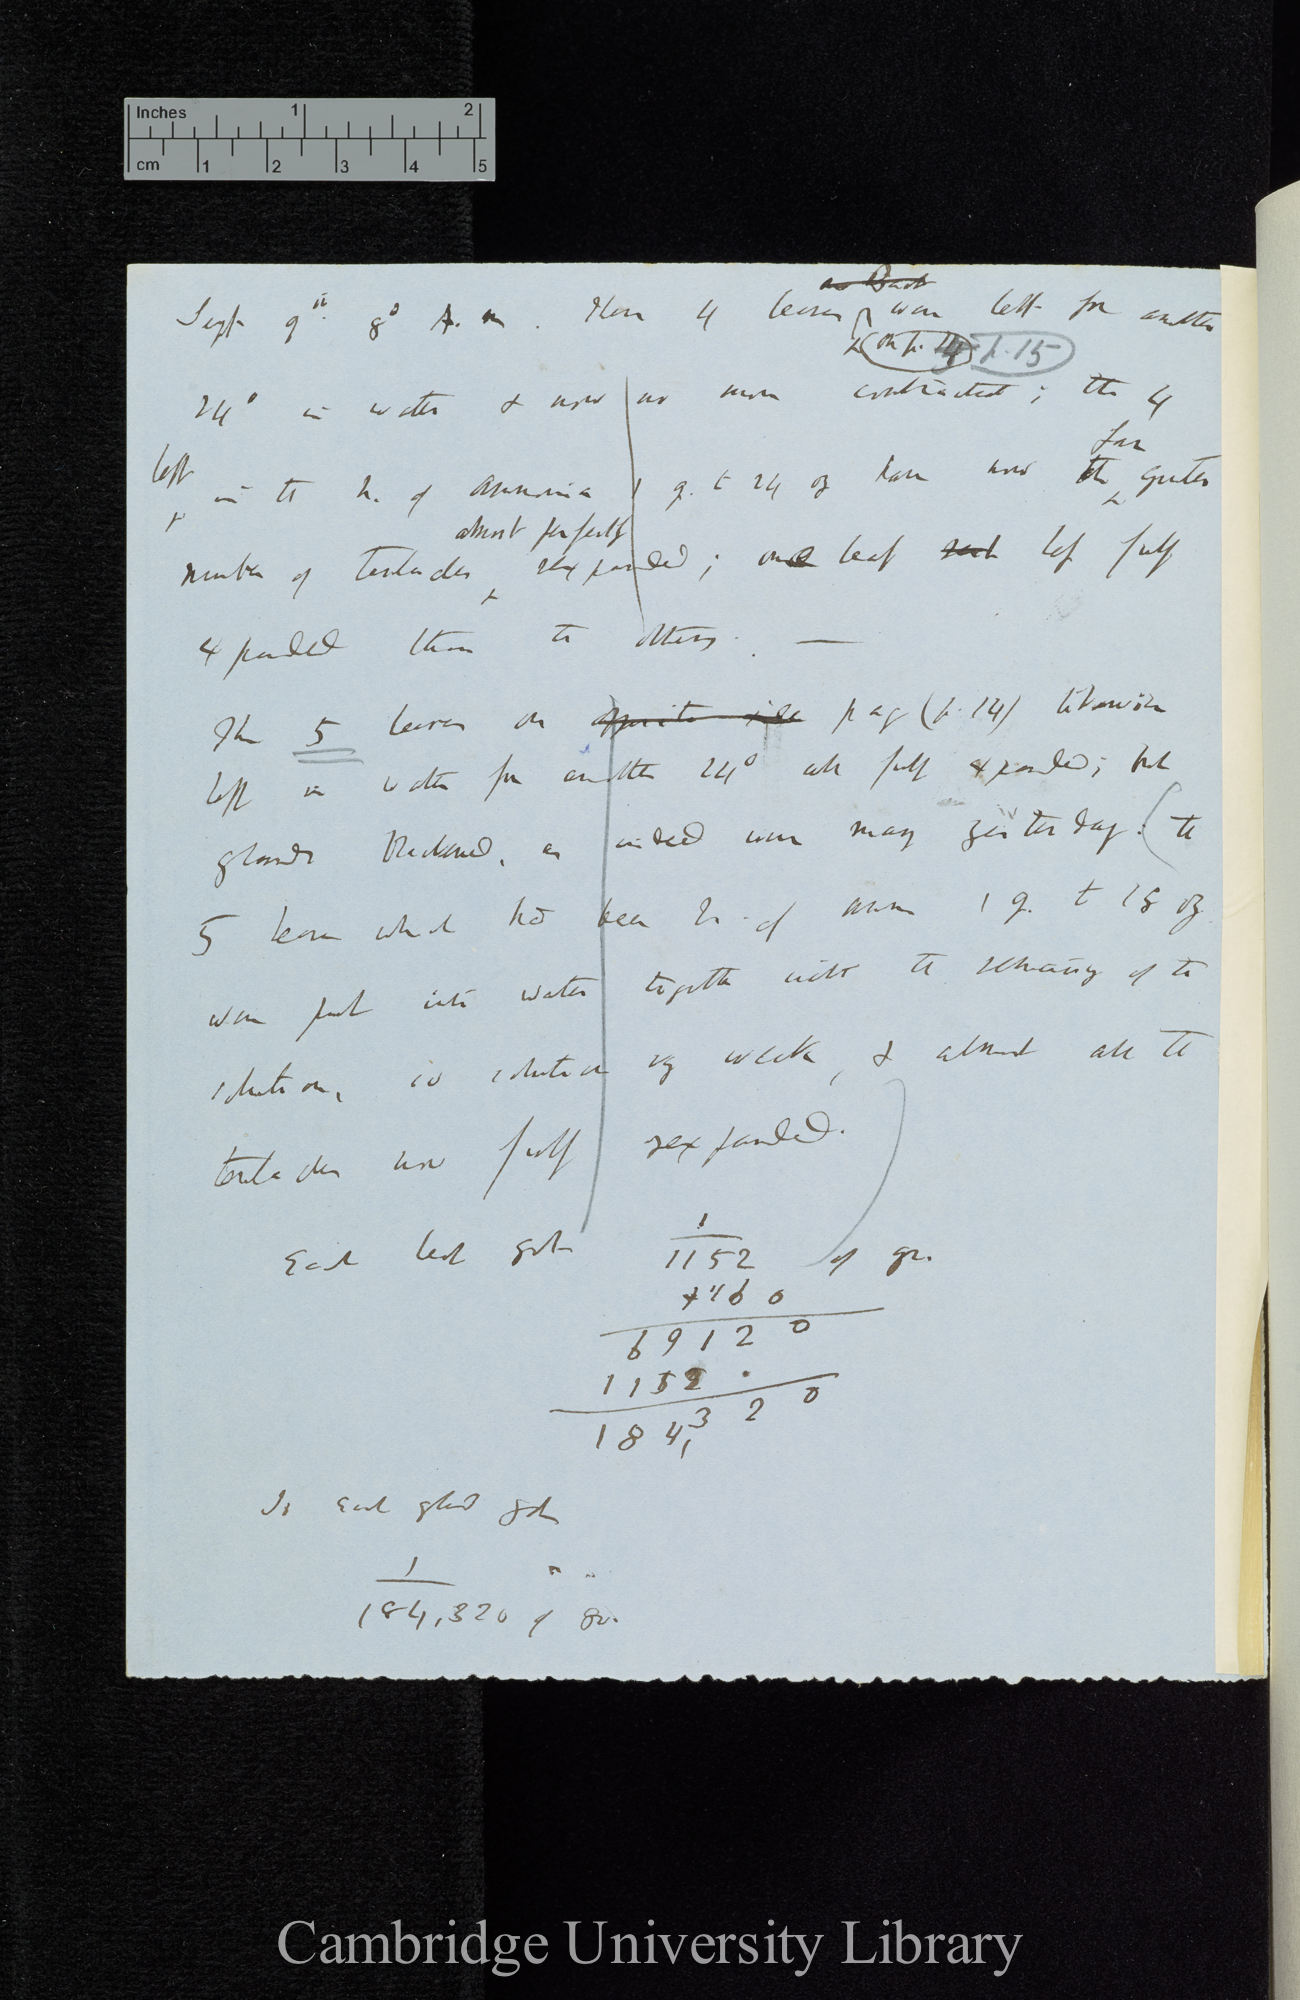 Inches 1 2
cm 1 2 3 4 5
on Back
Sept 9th. 8° A.m. These 4 leaves were left for another
(on p. 14) p. 15
24° in water & now no more contracted; the 4
far
left in the h. of Ammonia 1 gr. to 24 oz have now the greater
almost perfectly
number of tentacles reexpanded; one leaf less fully
expanded than the others. —
The 5 leaves on opposite side page (p. 14) likewise
left in water for another 24° all fully expanded; but
glands blackened, as indeed were many yesterday. (the
5 leaves which had been in h. of amm 1 gr. to 18 oz
were put into water together with the remaining of the
solution, so solution very weak, & almost all the
tentacles now fully reexpanded.
Each leaf got 1/1152 of gr.
160
69120
1152 .
184,320
So each gland got
1/184,320 of gr.
Cambridge University Library